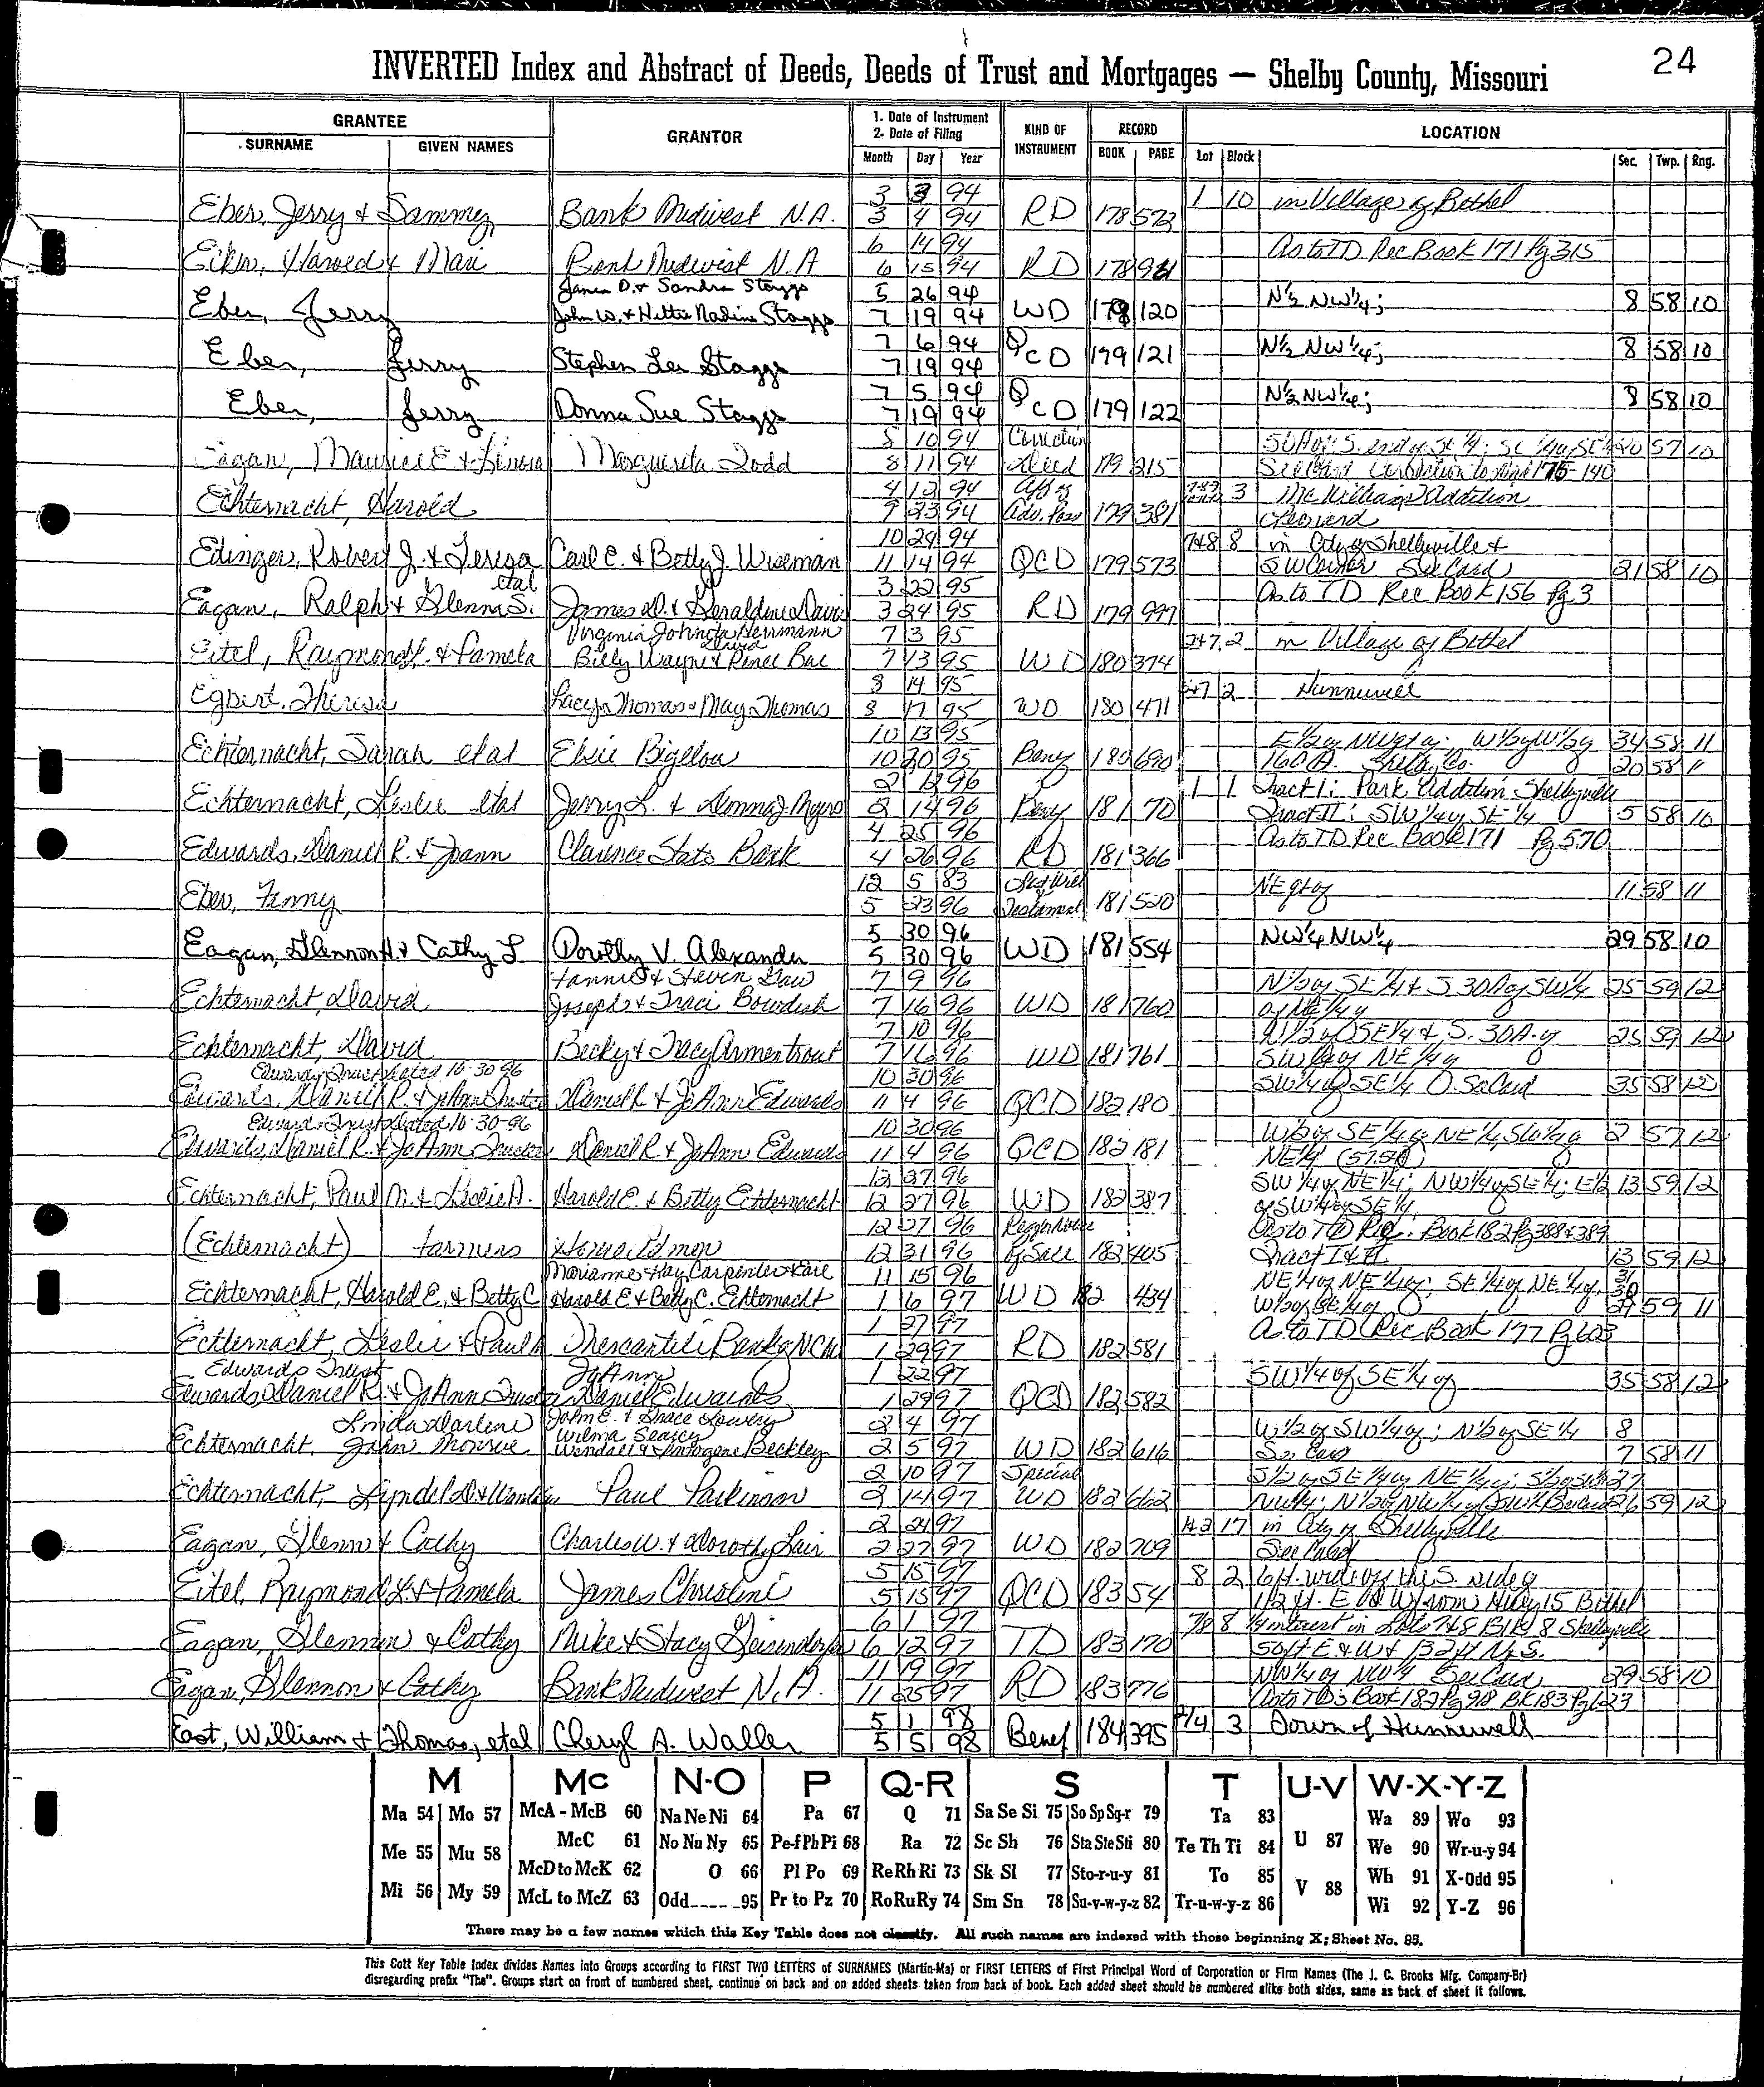 24
INVERTED Index and Abstract of Deeds, Deeds of Trust and Mortgages — Shelby County, Missouri
GRANTEE
SURNAME GIVEN NAMES
GRANTOR
1. Date of Instrument
2. Date of Filing
Month Day Year
KIND OF INSTRUMENT
RECORD
BOOK PAGE
LOCATION
Lot Block Sec. Twp. Rng.
3 3 94 1 10 in Village of Bethel
Eber, Jerry & Sammy Bank Midwest N.A. 3 4 94 RD 178 573
6 14 94 As to TD Rec Book 171 Pg 315
Harold & Bank Midwest N.A 6 15 94 RD 178
& Sandra Staggs 5 26 94 N½ NW¼; 8 58 10
Eber, Jerry John W. & Hettie Nadine Staggs 7 19 94 WD 120
7 6 94 N½ NW¼; 8 58 10
Eber, Jerry Stephen Lee Staggs 7 19 94 QCD 179 121
7 5 94 N½ NW¼; 8 58 10
Eber, Jerry Donna Sue Staggs 7 19 94 QCD 179 122
10 94 57 10
Eagan, Maurice E & Marguerita Todd 8 11 94 Deed 179 215
4 12 94 Aff of 3 McWilliams Addition
Echternacht, Harold 9 23 94 Adv. Poss 179 381 Leonard
10 24 94 7+8 8 in City of Shelbyville &
Edinger, Robert J. & Teresa Carl E. & Betty J. Wiseman 11 14 94 QCD 179 573 SW Corner See Card 31 58 10
etal 3 22 95 As to TD Rec Book 156 Pg 3
Eagan, Ralph & Glenna S. James D. & Geraldine Davis 3 24 95 RD 179 997
Virginia Johnita Herrmann 7 3 95 2 in Village of Bethel
David
Eitel, Raymond L. & Pamela Billy Wayne & Renee Bae 7 13 95 WD 180 374
8 14 95 2 Hunnewell
Egbert, Theresa Thomas & May Thomas 8 17 95 WD 180 471
10 13 95 34 58 11
Echternacht, Sarah etal Elsie Bigelow 10 30 95 Beny 180 690 160 A. Shelby Co. 20 58 11
96 1 1 Tract I: Park Addition Shelbyville
Echternacht, Leslie etal Jerry L. & Donna J 2 14 96 Beny 181 70 Tract II: SW¼ of SE¼ 5 58 10
4 25 96 As to TD Rec Book 171 Pg 570
Edwards, Daniel R. & Joann Clarence State Bank 4 26 96 RD 181 366
12 5 83 Last Will NE qt of 11 58 11
Eber, Fenny 5 23 96 Testament 181 520
5 30 96 NW¼ NW¼ 29 58 10
Eagan, Glennon A. & Cathy L Dorothy V. Alexander 5 30 96 WD 181 554
& Steven Gaw 7 9 96 N½ of SE¼ & S 30A of SW¼ 25 59 12
Echternacht, David Joseph & Traci Bowdish 7 16 96 WD 181 760 of NE¼ of
7 10 96 N½ of SE¼ & S. 30A. of 25 59 12
Echternacht, David Becky & Tracy Armentrout 7 16 96 WD 181 761 SW¼ of NE¼ of
Edwards Trust dated 10-30-96 10 30 96 SW¼ of SE¼ See Card 35 58 12
Edwards, Daniel R. & JoAnn Trustees Daniel R & JoAnn Edwards 11 4 96 QCD 182 180
Edwards Trust dated 10-30-96 10 30 96 W½ of SE¼ of NE¼, SW¼ of 2 57 12
Edwards, Daniel R. & JoAnn Trustees Daniel R & JoAnn Edwards 11 4 96 QCD 182 181 NE¼
12 27 96 SW¼ of NE¼; NW¼ of SE¼; E½ 13 59 12
Echternacht, Paul M. & Leslie A. Harold E. & Betty Echternacht 12 27 96 WD 182 387 of SW¼ of SE¼
12 27 96 As to TD Rec. Book 182 Pg 388 & 389
(Echternacht) Farmers Home Admn 12 31 96 of Sale 182 405 Tract I & II 13 59 12
Marianne & Ray Carpenter 11 15 96 NE¼ of NE¼ of; SE¼ of NE¼ of 30
Echternacht, Harold E. & Betty C Harold E & Betty C. Echternacht 1 6 97 WD 182 434 W½ of SE¼ of 29 59 11
1 27 97 As to TD Rec Book 177 Pg 603
Echternacht, Leslie & Paul Mercantile Bank of NC 1 29 97 RD 182 581
Edwards Trust JoAnn 1 22 97 SW¼ of SE¼ of 35 58 12
Edwards, Daniel R. & JoAnn Trustees Daniel Edwards 1 29 97 QCD 182 582
Linda Darlene John E. & Grace Lowery 2 4 97 W½ of SW¼ of; N½ of SE¼ 8
Wilma Searcy
Echternacht, John Monroe Wendall & Imogene Beckley 2 5 97 WD 182 616 See Card 7 58 11
2 10 97 Special S½ of SE¼ of NE¼ of; 27
Echternacht, Lyndel D & Paul Parkinson 2 14 97 WD 182 662 26 59 12
2 24 97 1+2 17 in City of Shelbyville
Eagan, Glenn & Cathy Charles W. & Dorothy Lair 2 27 97 WD 182 709 See Card
5 15 97 8 2 6 ft. wide off the S. side of
Eitel, Raymond L. & Pamela James Christine 5 15 97 QCD 183 54 Hwy 15 Bethel
6 1 97 7+8 8 ¼ interest in Lots 7+8 Blk 8 Shelbyville
Eagan, Glennon & Cathy Mike & Stacy 6 12 97 TD 183 170 50 ft E & W & 132 ft N & S.
11 19 97 NW¼ of NW¼ See Card 29 58 10
Eagan, Glennon & Cathy Bank Midwest N.A. 11 25 97 RD 183 776 As to TD's Book 182 Pg 98 BK 183 Pg 623
5 1 98 3 Town of Hunnewell
East, William & Thomas, etal Cheryl A. Waller 5 5 98 Benef 184 395
M Mc N-O P Q-R S T U-V W-X-Y-Z
Ma 54 Mo 57 McA - McB 60 Na Ne Ni 64 Pa 67 Q 71 Sa Se Si 75 So Sp Sq-r 79 Ta 83 U 87 Wa 89 Wo 93
Me 55 Mu 58 McC 61 No Nu Ny 65 Pe-f Ph Pi 68 Ra 72 Sc Sh 76 Sta Ste Sti 80 Te Th Ti 84 We 90 Wr-u-y 94
McD to McK 62 O 66 Pl Po 69 Re Rh Ri 73 Sk Sl 77 Sto-r-u-y 81 To 85 V 88 Wh 91 X-Odd 95
Mi 56 My 59 McL to McZ 63 Odd 95 Pr to Pz 70 Ro Ru Ry 74 Sm Sn 78 Su-v-w-y-z 82 Tr-u-w-y-z 86 Wi 92 Y-Z 96
There may be a few names which this Key Table does not classify. All such names are indexed with those beginning X; Sheet No. 95.
This Cott Key Table Index divides Names into Groups according to FIRST TWO LETTERS of SURNAMES (Martin-Ma) or FIRST LETTERS of First Principal Word of Corporation or Firm Names (The J. C. Brooks Mfg. Company-Br)
disregarding prefix "The". Groups start on front of numbered sheet, continue on back and on added sheets taken from back of book. Each added sheet should be numbered alike both sides, same as back of sheet it follows.